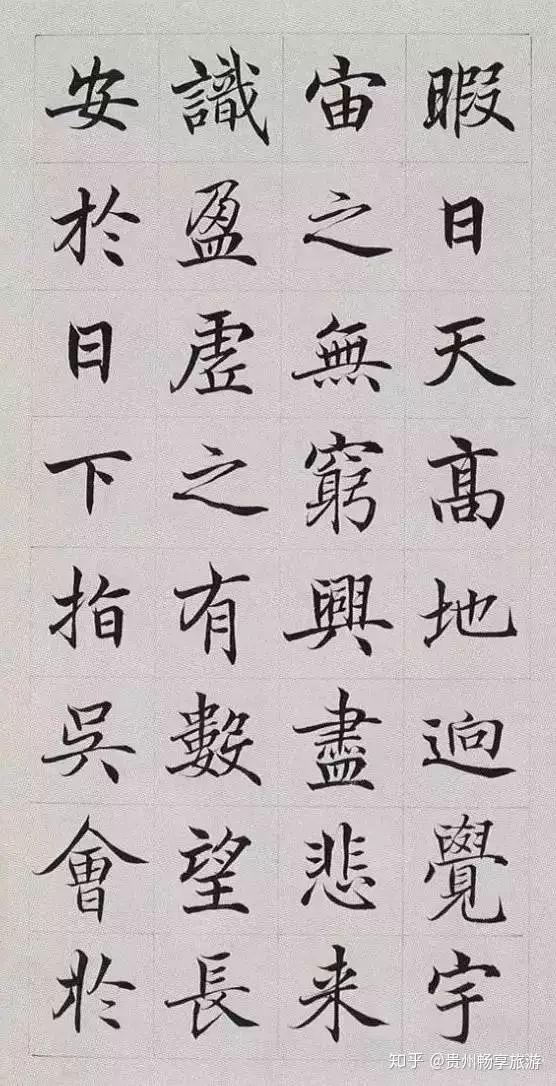 暇日天高地逈覺宇
宙之無窮興盡悲来
識盈虗之有數望長
安於日下指吳會於
知乎 @贵州畅享旅游